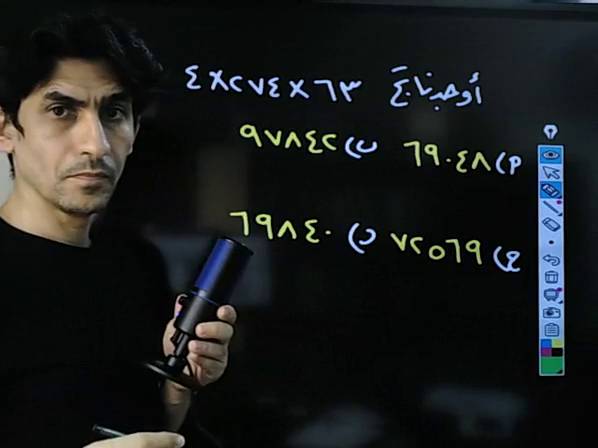 أوجد ناتج ٤ × ٢٧٤ × ٦٣
أ) ٦٩٠٤٨ ب) ٩٧٨٤٢
ج) ٧٢٥٦٩ د) ٦٩٨٤٠